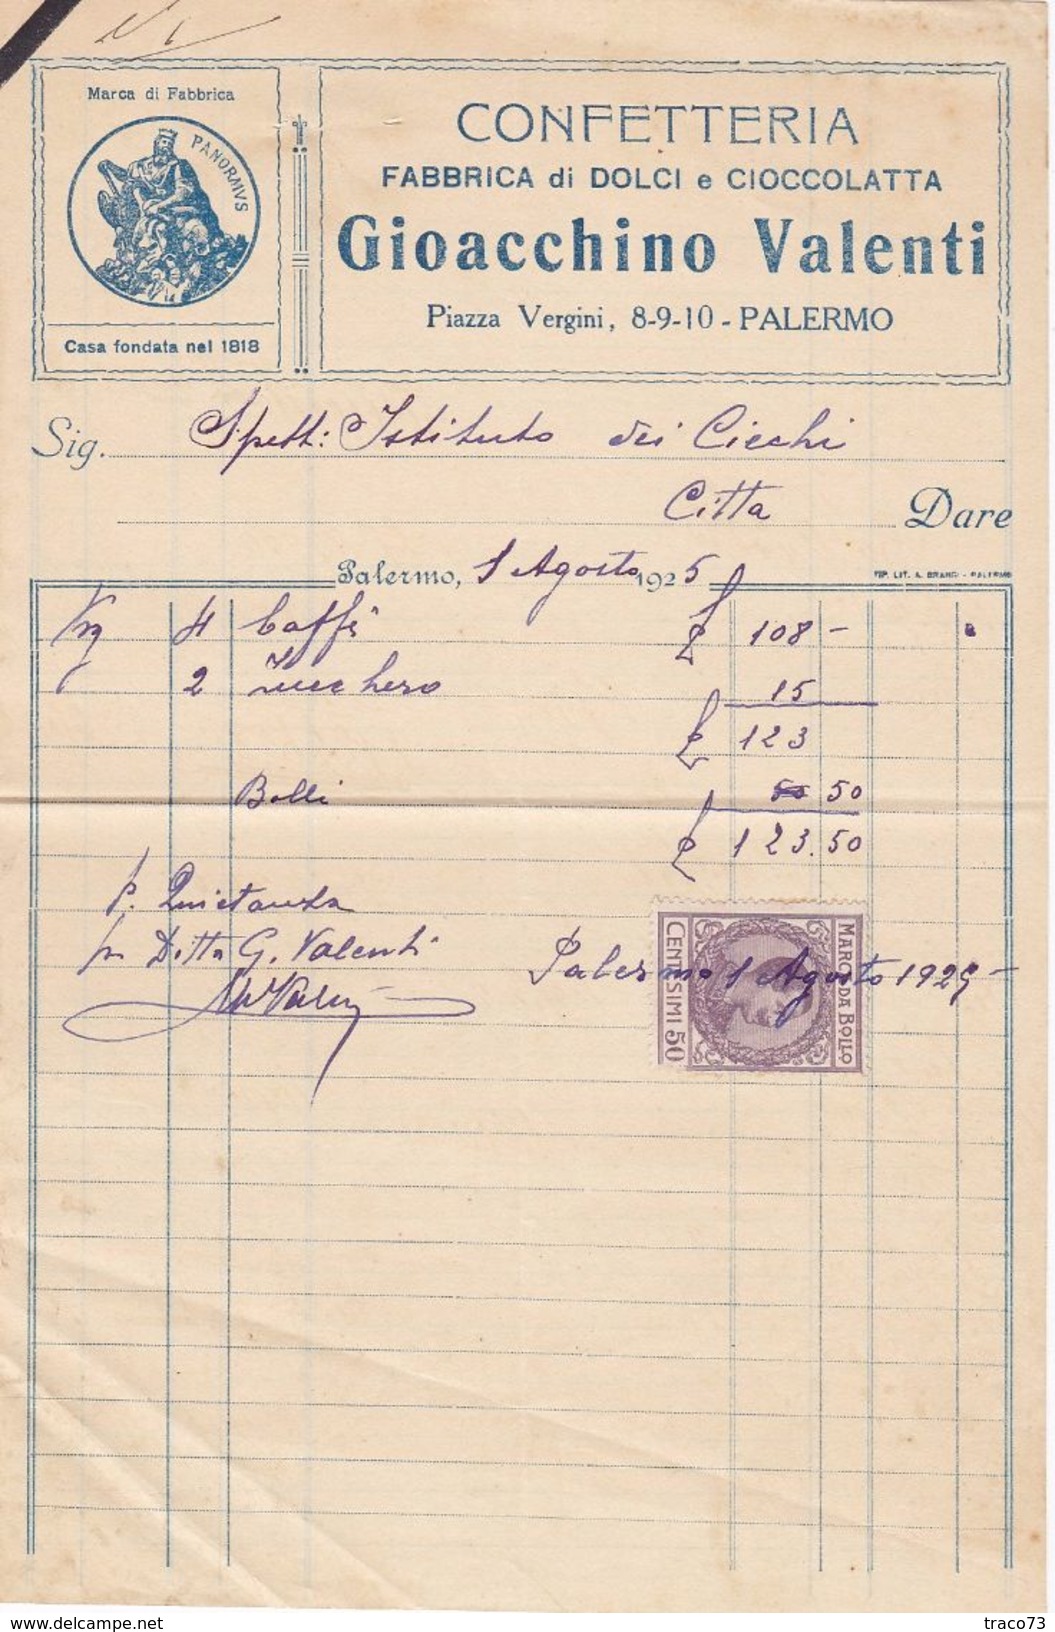 N 1
Marca di Fabbrica
PANORMVS
Casa fondata nel 1818
CONFETTERIA
FABBRICA di DOLCI e CIOCCOLATTA
Gioacchino Valenti
Piazza Vergini, 8-9-10 - PALERMO
Sig. Spett: Istituto dei Ciechi
Citta Dare
Palermo, 1 Agosto 1925
TIP. LIT. A. BRANGI - PALERMO
Kg 4 Caffè £ 108 -
2 Zucchero 15
£ 123
Bolli 50 50
£ 123.50
p. Quietanza
pr Ditta G. Valenti
MARCA DA BOLLO
CENTESIMI 50
Palermo 1 Agosto 1925 -
www.delcampe.net
traco73